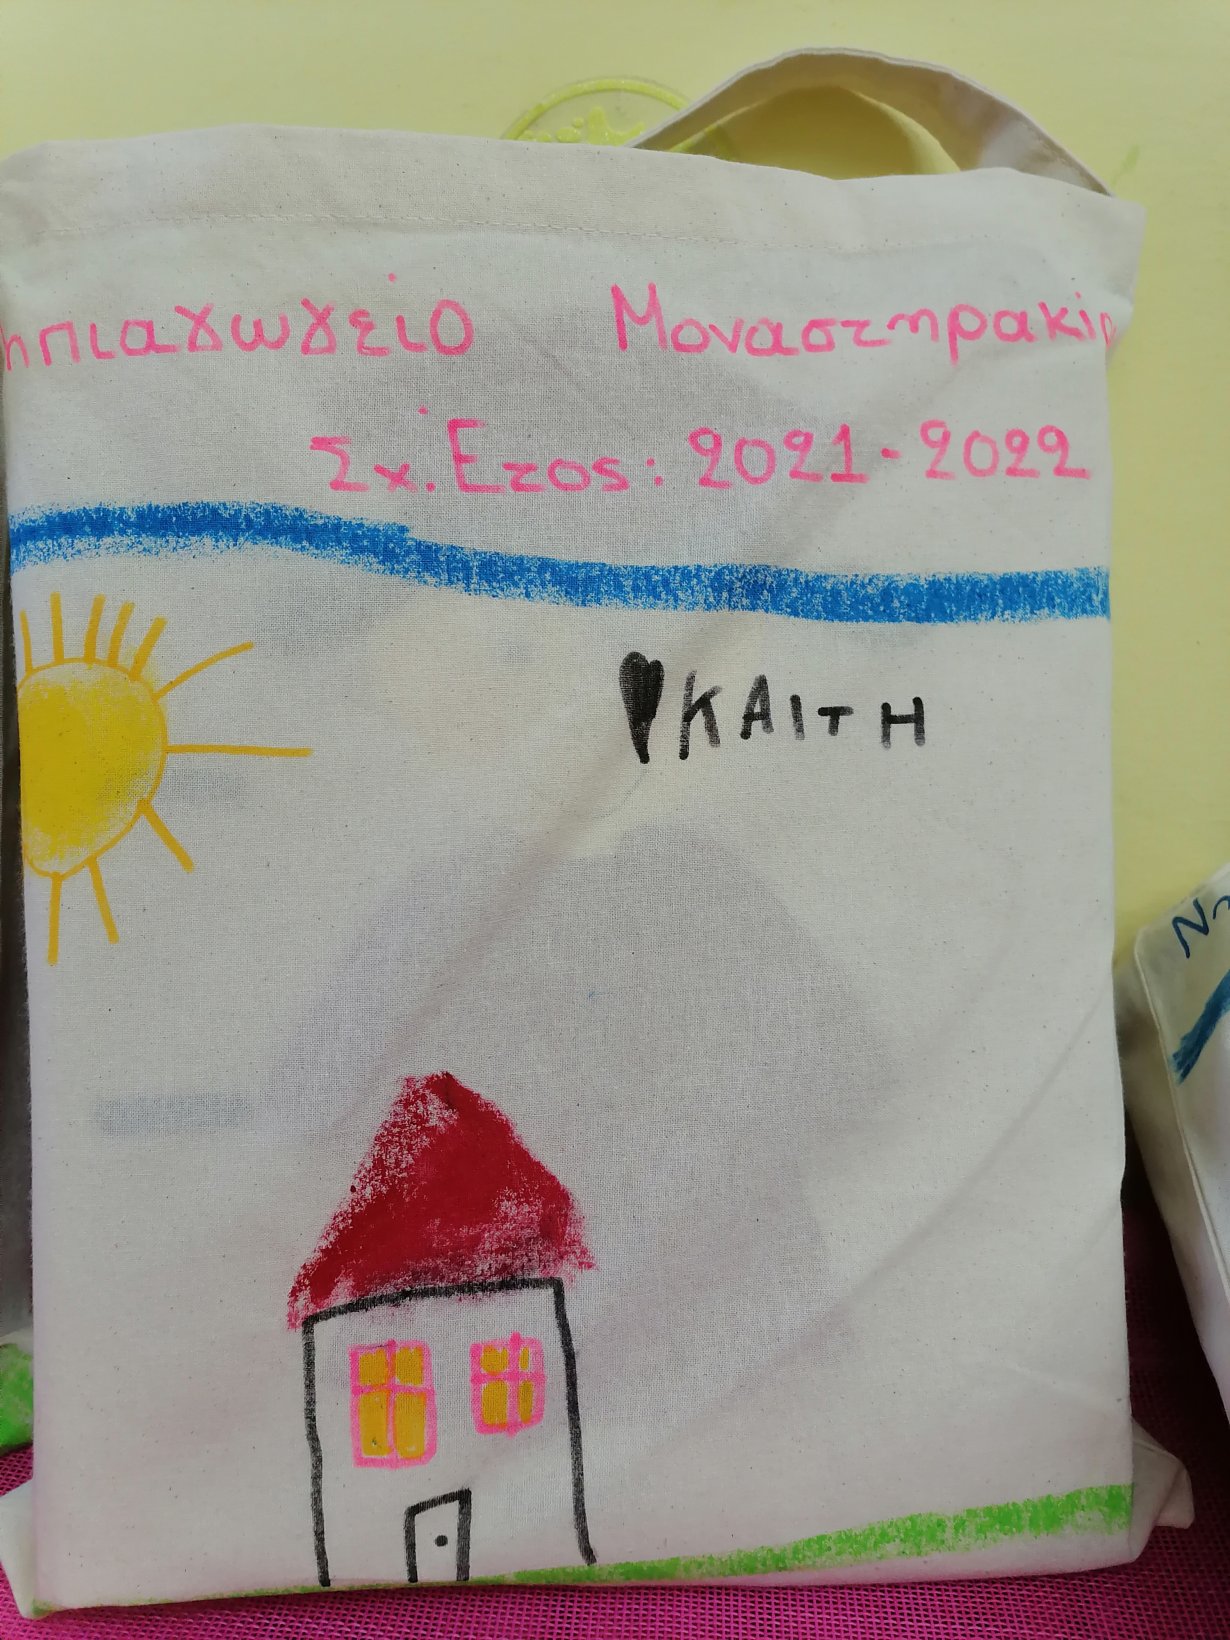 ηπιαγωγείο Μοναστηρακί
Σχ. Έτος: 2021-2022
ΚΑΙΤΗ